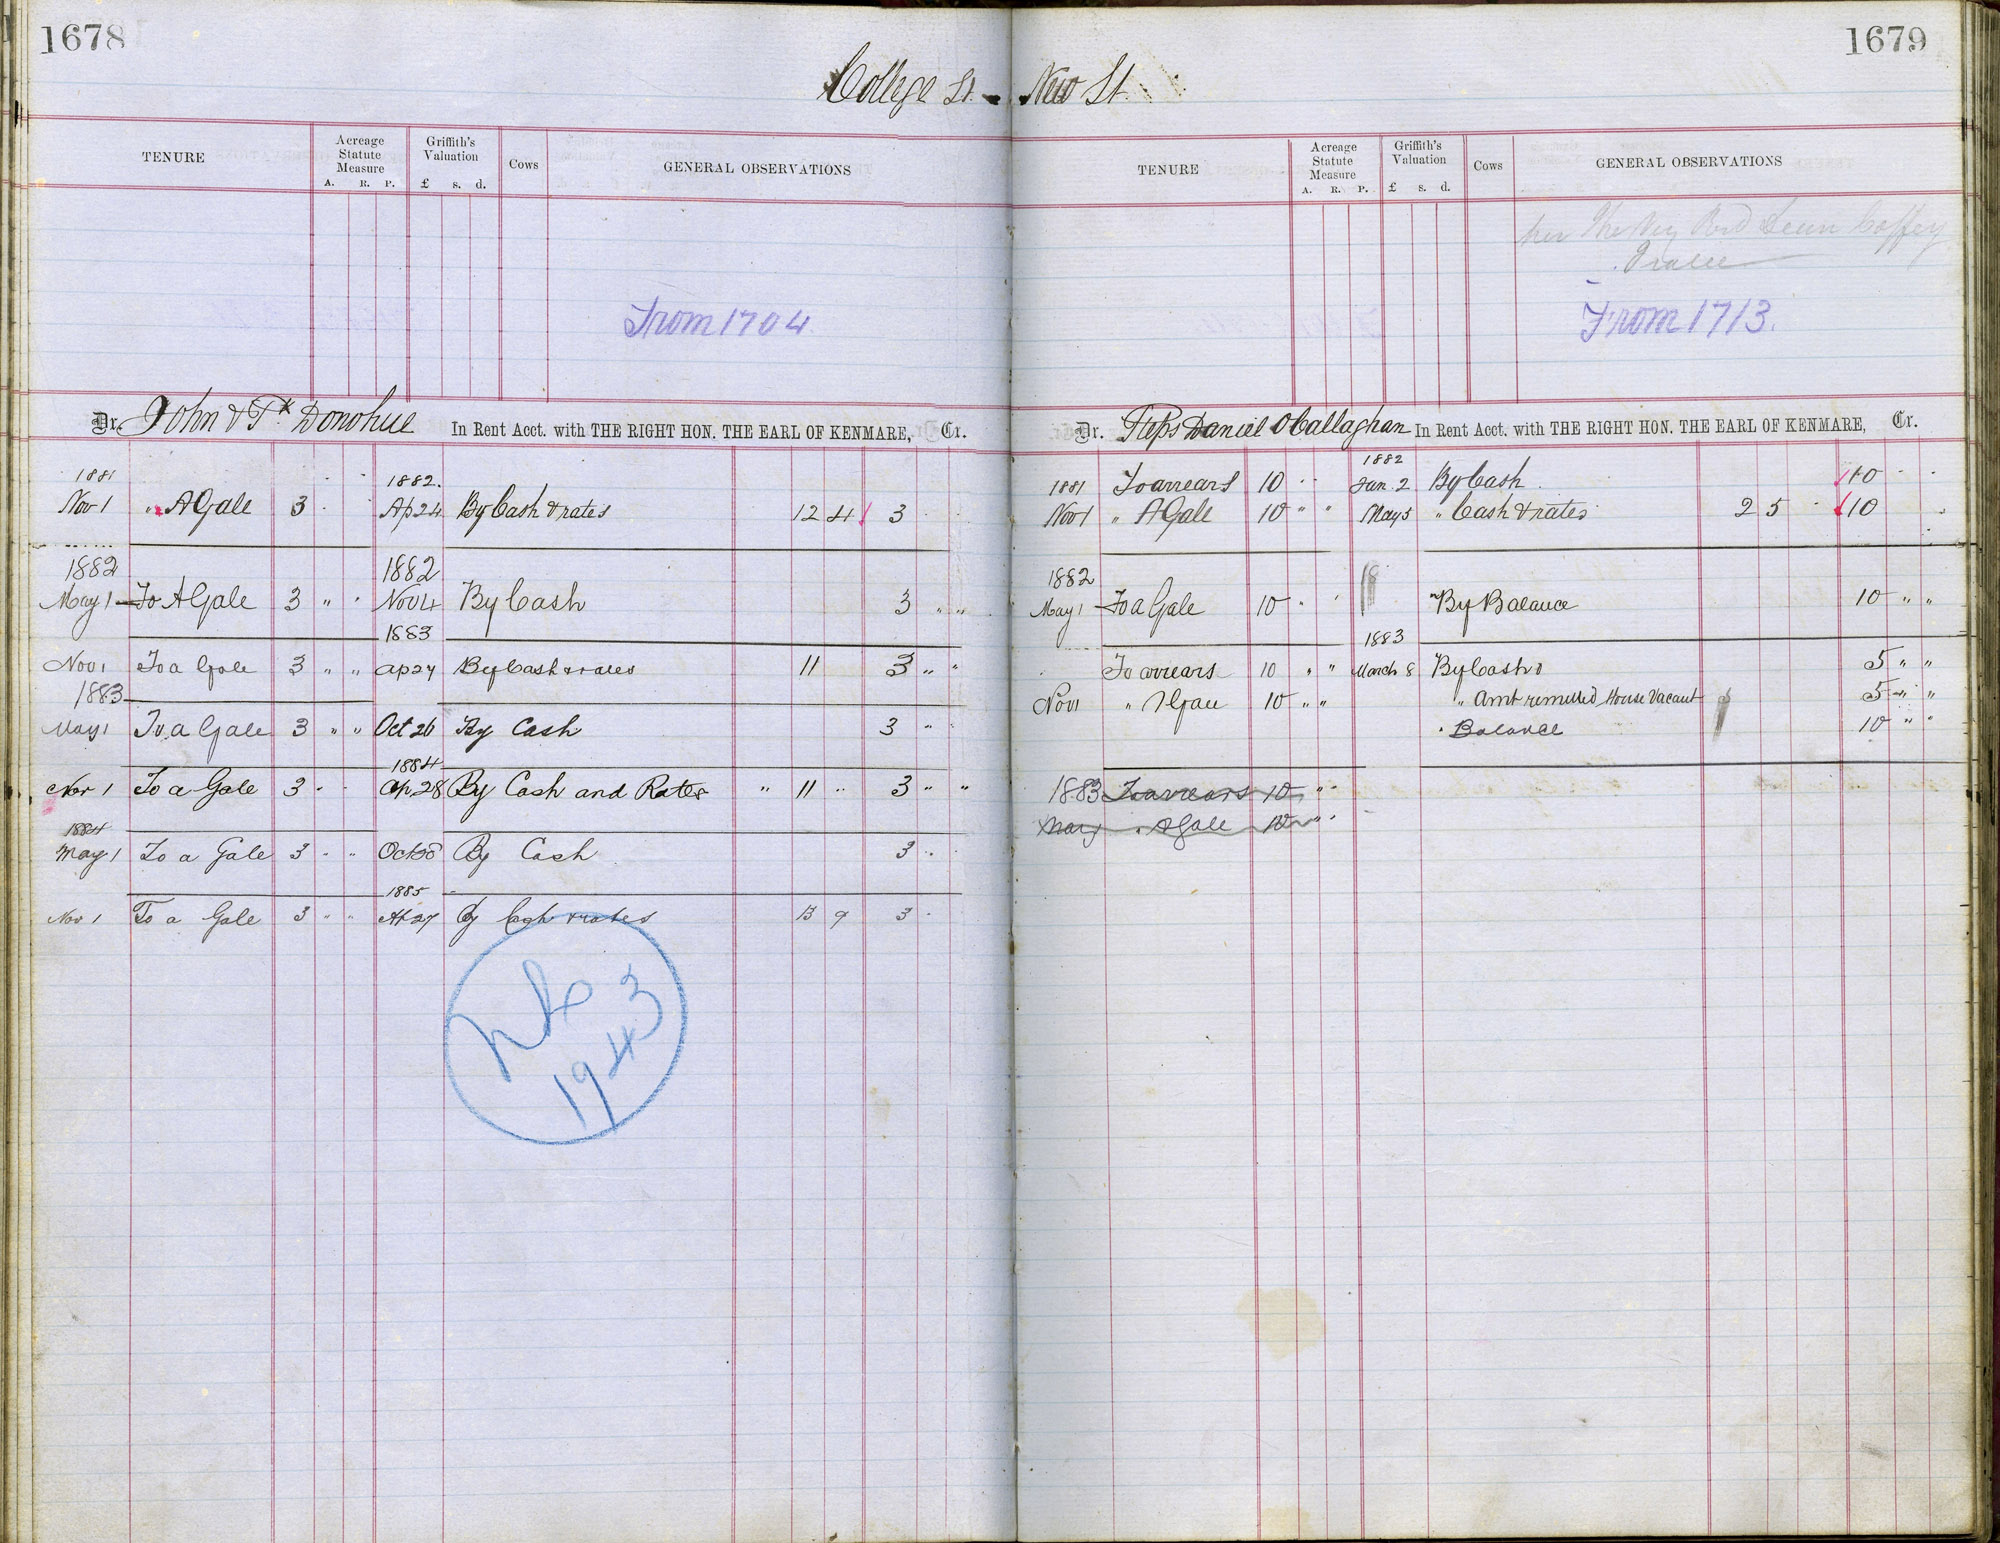 1678
College St. - New St.
1679
TENURE
Acreage Statute Measure
A. R. P.
Griffith's Valuation
£ s. d.
Cows
GENERAL OBSERVATIONS
From 1704
Dr. John & Pk Donohue In Rent Acct. with THE RIGHT HON. THE EARL OF KENMARE, Cr.
1881 1882.
Nov 1 " A Gale 3 Ap 24 By Cash & rates 12 4 3
1882 1882
May 1 To A Gale 3 " " Nov 4 By Cash 3 " "
1883
Nov 1 To a Gale 3 " " Ap 24 By Cash & rates 11 3 " "
1883
May 1 To a Gale 3 " " Oct 26 By Cash 3 "
1884
Nov 1 To a Gale 3 " Ap 28 By Cash and Rates " 11 " 3 " "
1884
May 1 To a Gale 3 " " Oct By Cash 3
1885
Nov 1 To a Gale 3 " " Ap 27 By Cash & rates 13 9 3
1943
TENURE
Acreage Statute Measure
A. R. P.
Griffith's Valuation
£ s. d.
Cows
GENERAL OBSERVATIONS
The Very Revd Dean Coffey
Tralee
From 1713.
Dr. Reps Daniel O Callaghan In Rent Acct. with THE RIGHT HON. THE EARL OF KENMARE, Cr.
1882
1881 To arrears 10 " Jan. 2 By Cash 10
Nov 1 " A Gale 10 " " May 5 " Cash & rates 2 5 10
1882 18
May 1 To a Gale 10 " " By Balance 10 " "
1883
To arrears 10 " " March 8 By Cash 5 " "
Nov 1 " A Gale 10 " " " Amt remitted House Vacant 5 " "
" Balance 10 " "
1883 To arrears 10 " "
May " A Gale 10 "